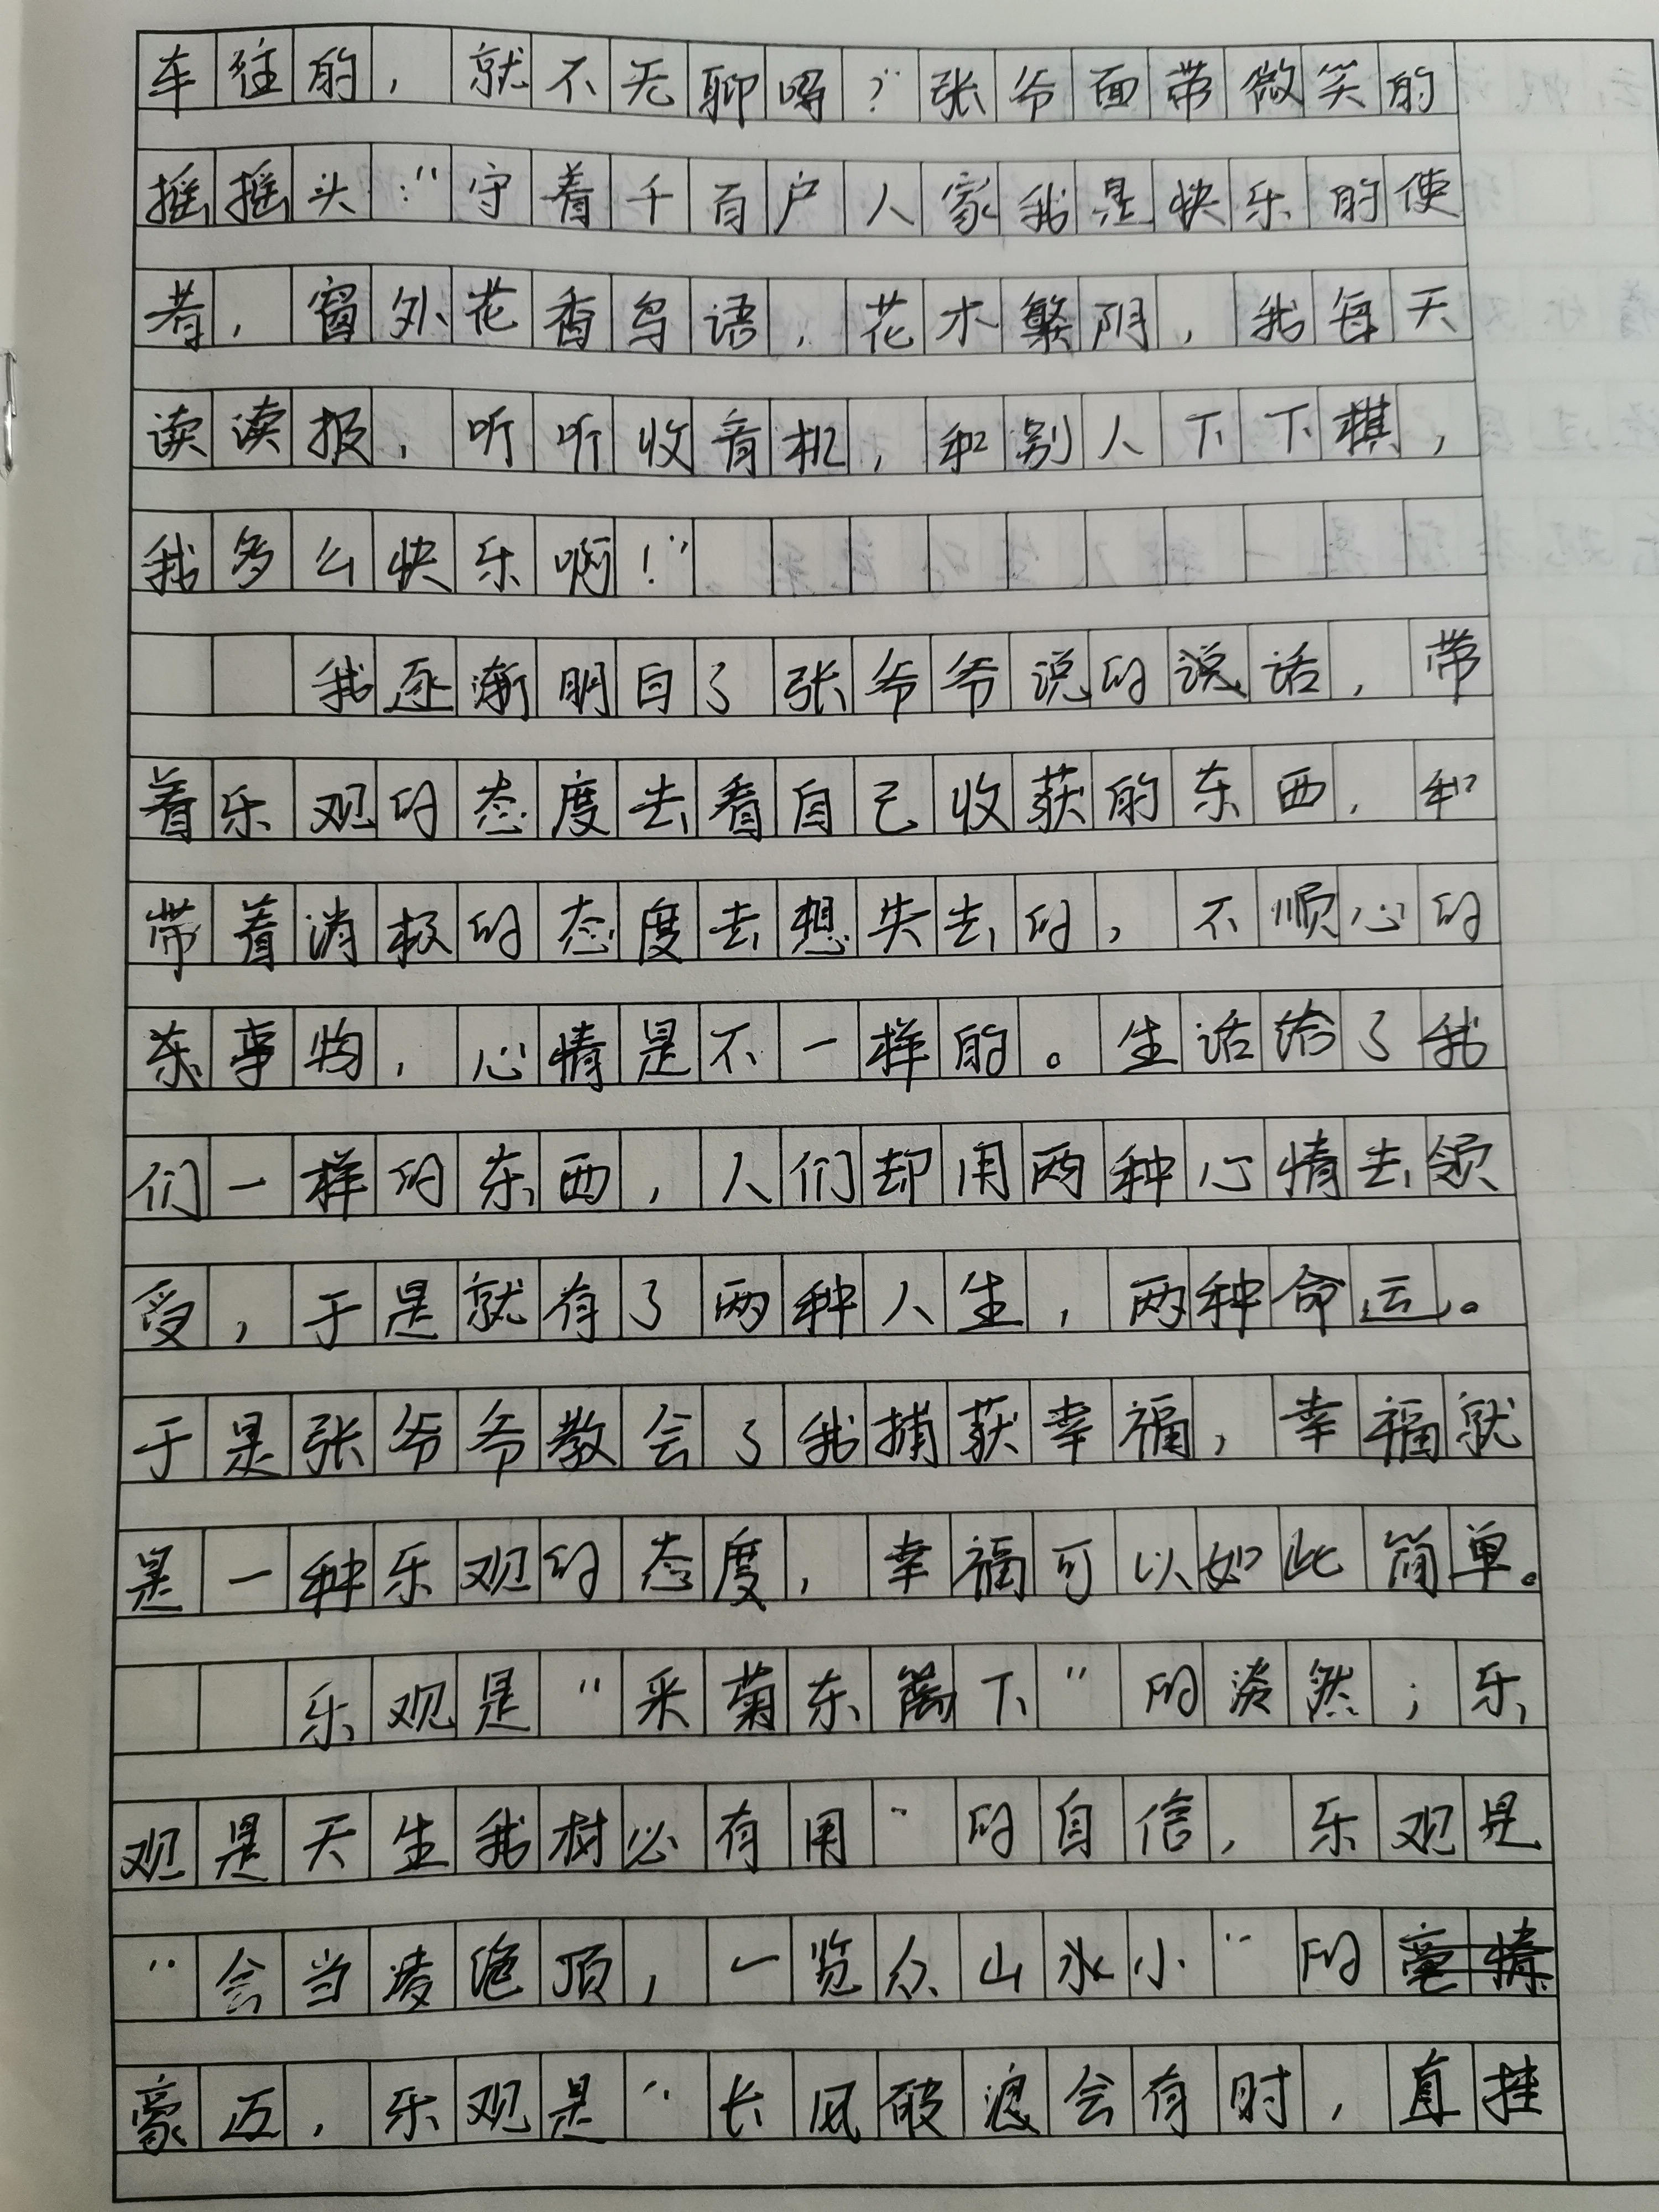 车往的，就不无聊吗？”张爷面带微笑的
摇摇头：“守着千百户人家我是快乐的使
者，窗外花香鸟语，花木繁阴，我每天
读读报，听听收音机，和别人下下棋，
我多么快乐啊！”
我逐渐明白了张爷爷说的说话，带
着乐观的态度去看自己收获的东西，和
带着消极的态度去想失去的，不顺心的
东事物，心情是不一样的。生活给了我
们一样的东西，人们却用两种心情去领
受，于是就有了两种人生，两种命运。
于是张爷爷教会了我捕获幸福，幸福就
是一种乐观的态度，幸福可以如此简单。
乐观是“采菊东篱下”的淡然；乐
观是天生我树必有用”的自信，乐观是
“会当凌绝顶，一览众山水小”的
豪迈，乐观是“长风破浪会有时，直挂